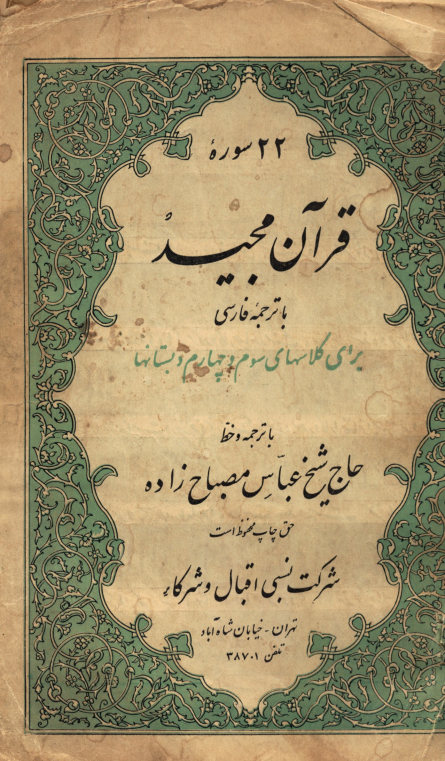 ۲۲ سورهٔ
قرآن مجید
با ترجمهٔ فارسی
برای کلاسهای سوم و چهارم دبستانها
با ترجمه و خط
حاج شیخ عبّاس مصباح زاده
حق چاپ محفوظ است
شرکت نسبی اقبال و شرکاء
تهران - خیابان شاه آباد
تلفن ۳۸۷۰۱